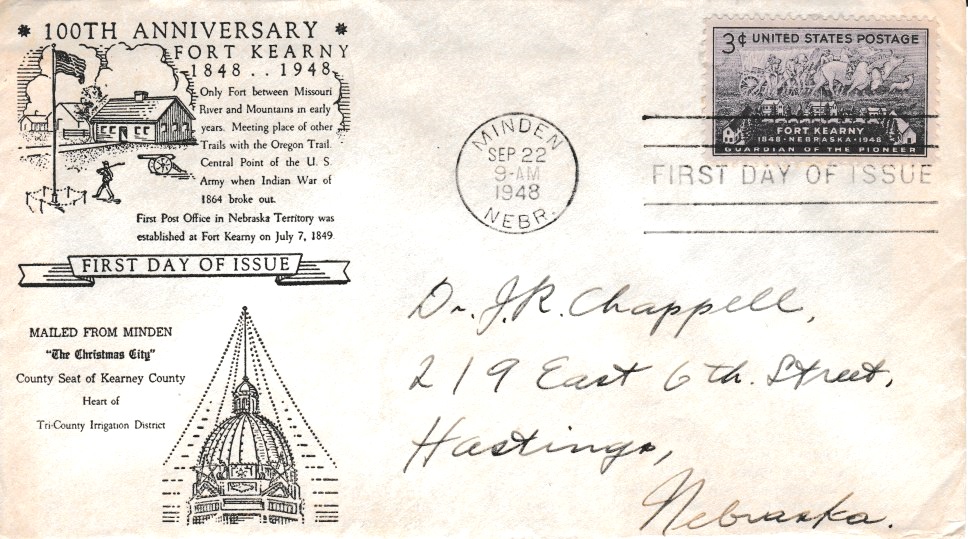 * 100TH ANNIVERSARY *
FORT KEARNY
1848 . . 1948
Only Fort between Missouri
River and Mountains in early
years. Meeting place of other
Trails with the Oregon Trail.
Central Point of the U. S.
Army when Indian War of
1864 broke out.
First Post Office in Nebraska Territory was
established at Fort Kearny on July 7, 1849.
FIRST DAY OF ISSUE
MAILED FROM MINDEN
"The Christmas City"
County Seat of Kearney County
Heart of
Tri-County Irrigation District
MINDEN
SEP 22
9-AM
1948
NEBR.
3¢ UNITED STATES POSTAGE
FORT KEARNY
1848·NEBRASKA·1948
GUARDIAN OF THE PIONEER
FIRST DAY OF ISSUE
Dr. J.R. Chappell,
219 East 6th. Street,
Hastings,
Nebraska.